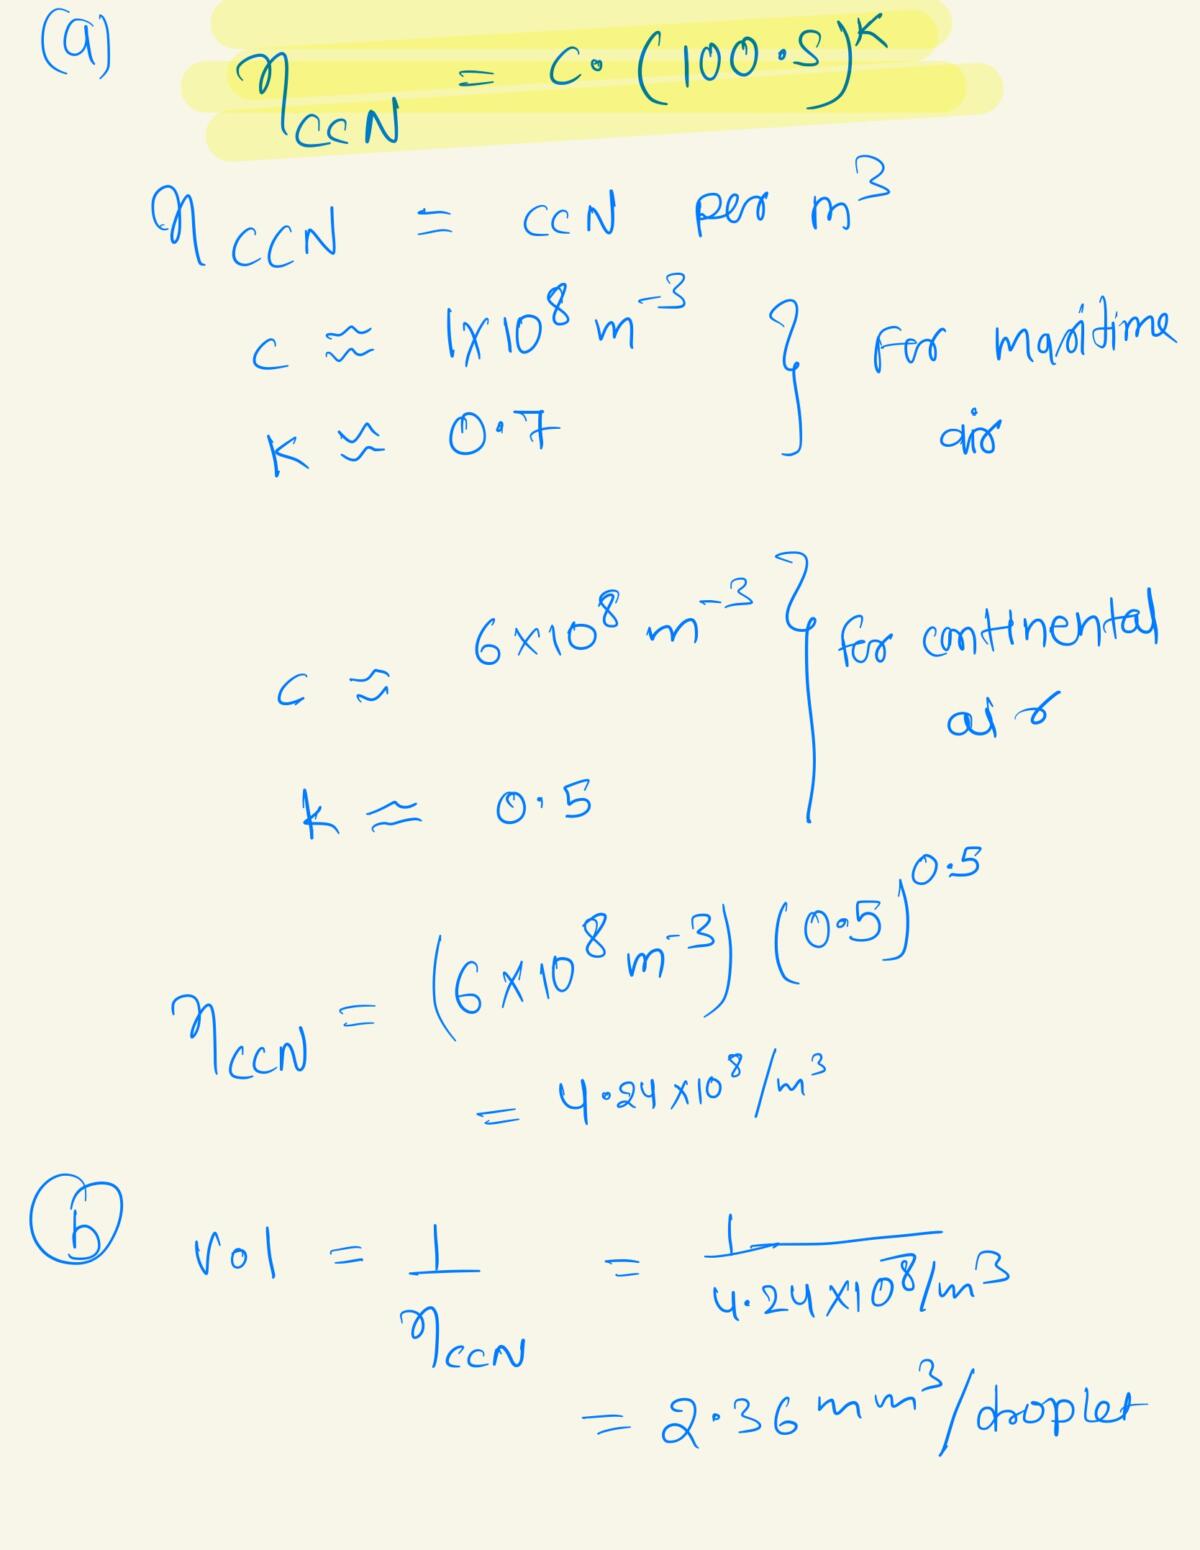 (a) η_CCN = c · (100·S)^K
η_CCN = CCN per m³
c ≈ 1×10⁸ m⁻³ } For maritime
K ≈ 0.7 air
c ≈ 6×10⁸ m⁻³ } for continental
air
k ≈ 0.5
η_CCN = (6×10⁸ m⁻³) (0.5)^0.5
= 4.24×10⁸/m³
(b) vol = 1/η_CCN = 1/(4.24×10⁸/m³)
= 2.36 mm³/droplet